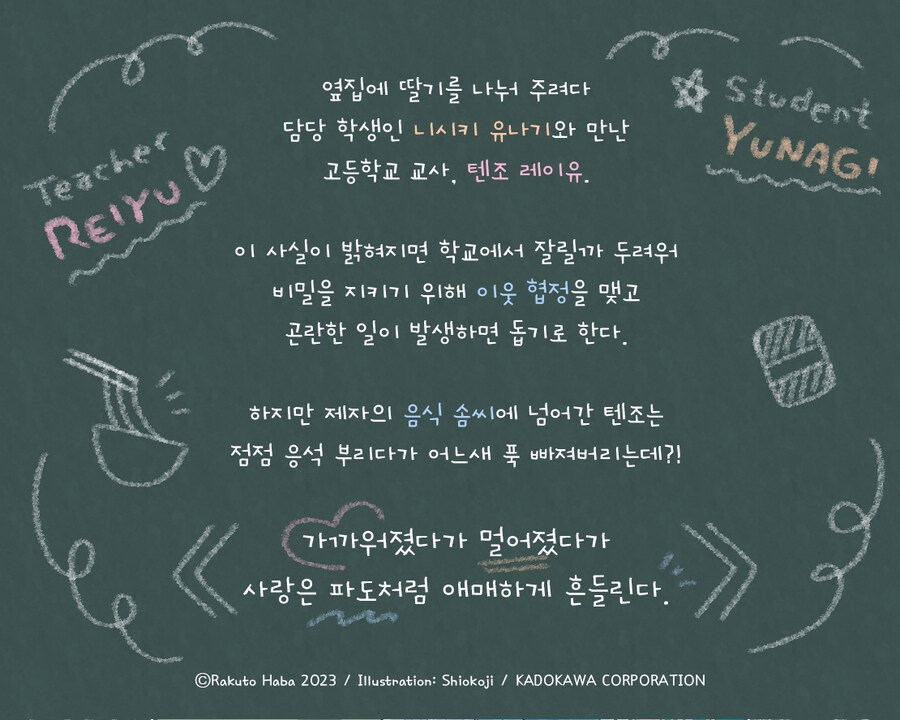 Teacher
REIYU
Student
YUNAGI
옆집에 딸기를 나눠 주려다
담당 학생인 니시키 유나기와 만난
고등학교 교사, 텐조 레이유.
이 사실이 밝혀지면 학교에서 잘릴까 두려워
비밀을 지키기 위해 이웃 협정을 맺고
곤란한 일이 발생하면 돕기로 한다.
하지만 제자의 음식 솜씨에 넘어간 텐조는
점점 응석 부리다가 어느새 푹 빠져버리는데?!
가까워졌다가 멀어졌다가
사랑은 파도처럼 애매하게 흔들린다.
©Rakuto Haba 2023 / Illustration: Shiokoji / KADOKAWA CORPORATION